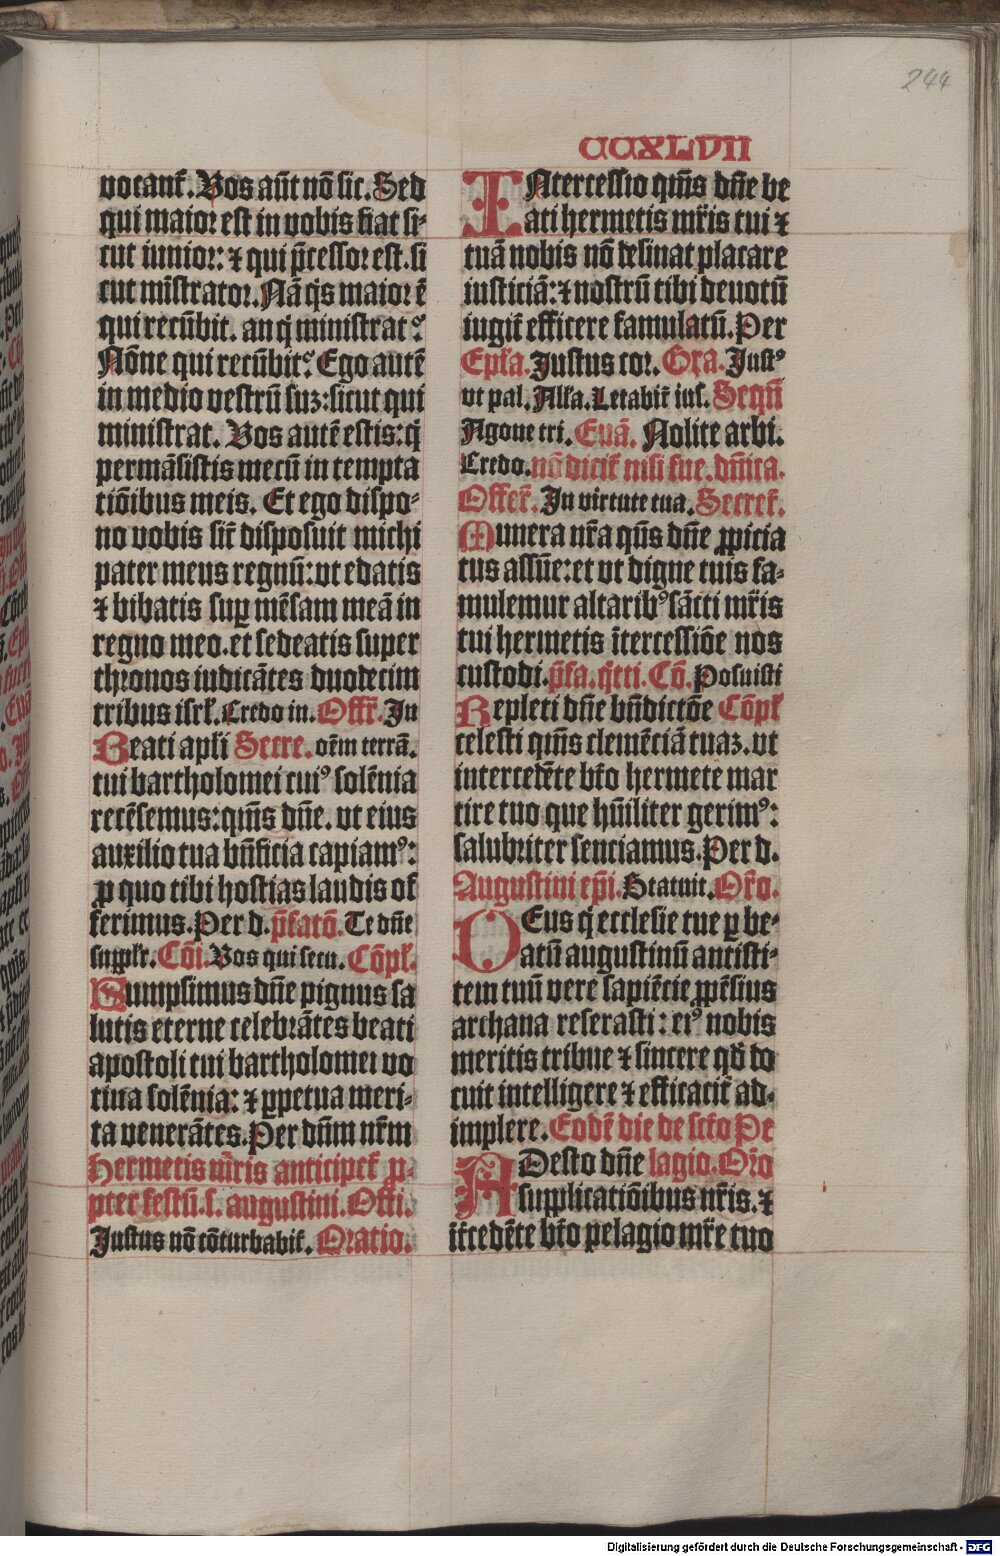 244
CCXLVII
vocant᷑. Vos aūt nō sic. Sed
qui maior est in vobis fiat si-
cut iunior: ⁊ qui p̄cessor est. si
cut mīstrator. Nā q̇s maior ē
qui recūbit. an q̇ ministrat?
Nōne qui recūbit? Ego autē
in medio vestrū suꝫ: sicut qui
ministrat. Vos autē estis: q̇
permāsistis mecū in tempta
tiōibus meis. Et ego dispo-
no vobis sic̄ disposuit michi
pater meus regnū: vt edatis
⁊ bibatis suꝑ mēsam meā in
regno meo. et sedeatis super
thronos iudicātes duodecim
tribus isrł. Credo in. Offr̄. In
Beati apłi Secre. oēm terrā.
tui bartholomei cuiꝰ solēnia
recēsemus: qm̄s dn̄e. vt eius
auxilio tua bn̄ficia capiamꝰ:
ꝓ quo tibi hostias laudis of
ferimus. Per d. p̄fatō. Te dn̄e
supplr̄. Cōi. Vos qui secu. Cōpł.
Sumpsimus dn̄e pignus sa
lutis eterne celebrātes beati
apostoli tui bartholomei vo
tiua solēnia: ⁊ ꝑpetua meri-
ta venerātes. Per dn̄m nr̄m
Hermetis m̄ris anticipet᷑ ꝓ-
pter festū. s. augustini. Offi.
Justus nō cōturbabit᷑. Oratio.
INtercessio qm̄s dn̄e be
ati hermetis mr̄is tui ⁊
tuā nobis nō desinat placare
iusticiā: ⁊ nostrū tibi deuotū
iugit᷑ efficere famulatū. Per
Epłа. Justus cor. Gra. Justꝰ
vt pal. Alła. Letabit᷑ ius. Seqū
Agone tri. Euā. Nolite arbi.
Credo. nō dicit᷑ nisi fue. dn̄ica.
Offer̄. In virtute tua. Secret᷑.
Munera nr̄a qūs dn̄e ꝓpicia
tus assūe: et vt digne tuis fa-
mulemur altaribꝰ sācti mr̄is
tui hermetis ītercessiōe nos
custodi. p̄fa. q̄tti. Cō. Posuisti
Repleti dn̄e bn̄dictōe Cōpł
celesti qm̄s clemēciā tuaꝫ. vt
intercedēte bt̄o hermete mar
tire tuo que hūiliter gerimꝰ:
salubriter senciamus. Per d.
Augustini ep̄i. Statuit. Or̄o.
DEus q̇ ecclesie tue ꝑ be-
atū augustinū antisti-
tem tuū vere sapiēcie ꝓpēsius
archana reserasti: eiꝰ nobis
meritis tribue ⁊ sincere qd̄ do
cuit intelligere ⁊ efficacit᷑ ad-
implere. Eodē die de scto Pe
ADesto dn̄e lagio. Or̄o
supplicatiōibus nr̄is. ⁊
īt᷑cedēte bt̄o pelagio mr̄e tuo
Digitalisierung gefördert durch die Deutsche Forschungsgemeinschaft - DFG